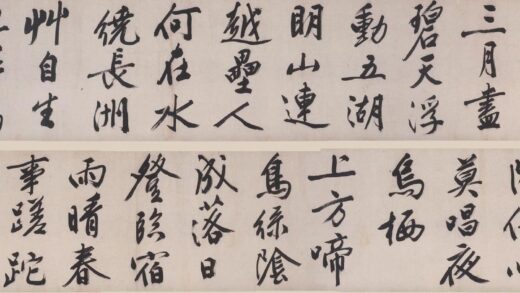 三月盡
碧天浮
動五湖
明山連
越壘人
何在水
繞長洲
艸自生
莫唱夜
烏栖
上方啼
鳥綠陰
成落日
登臨宿
雨晴春
事蹉跎